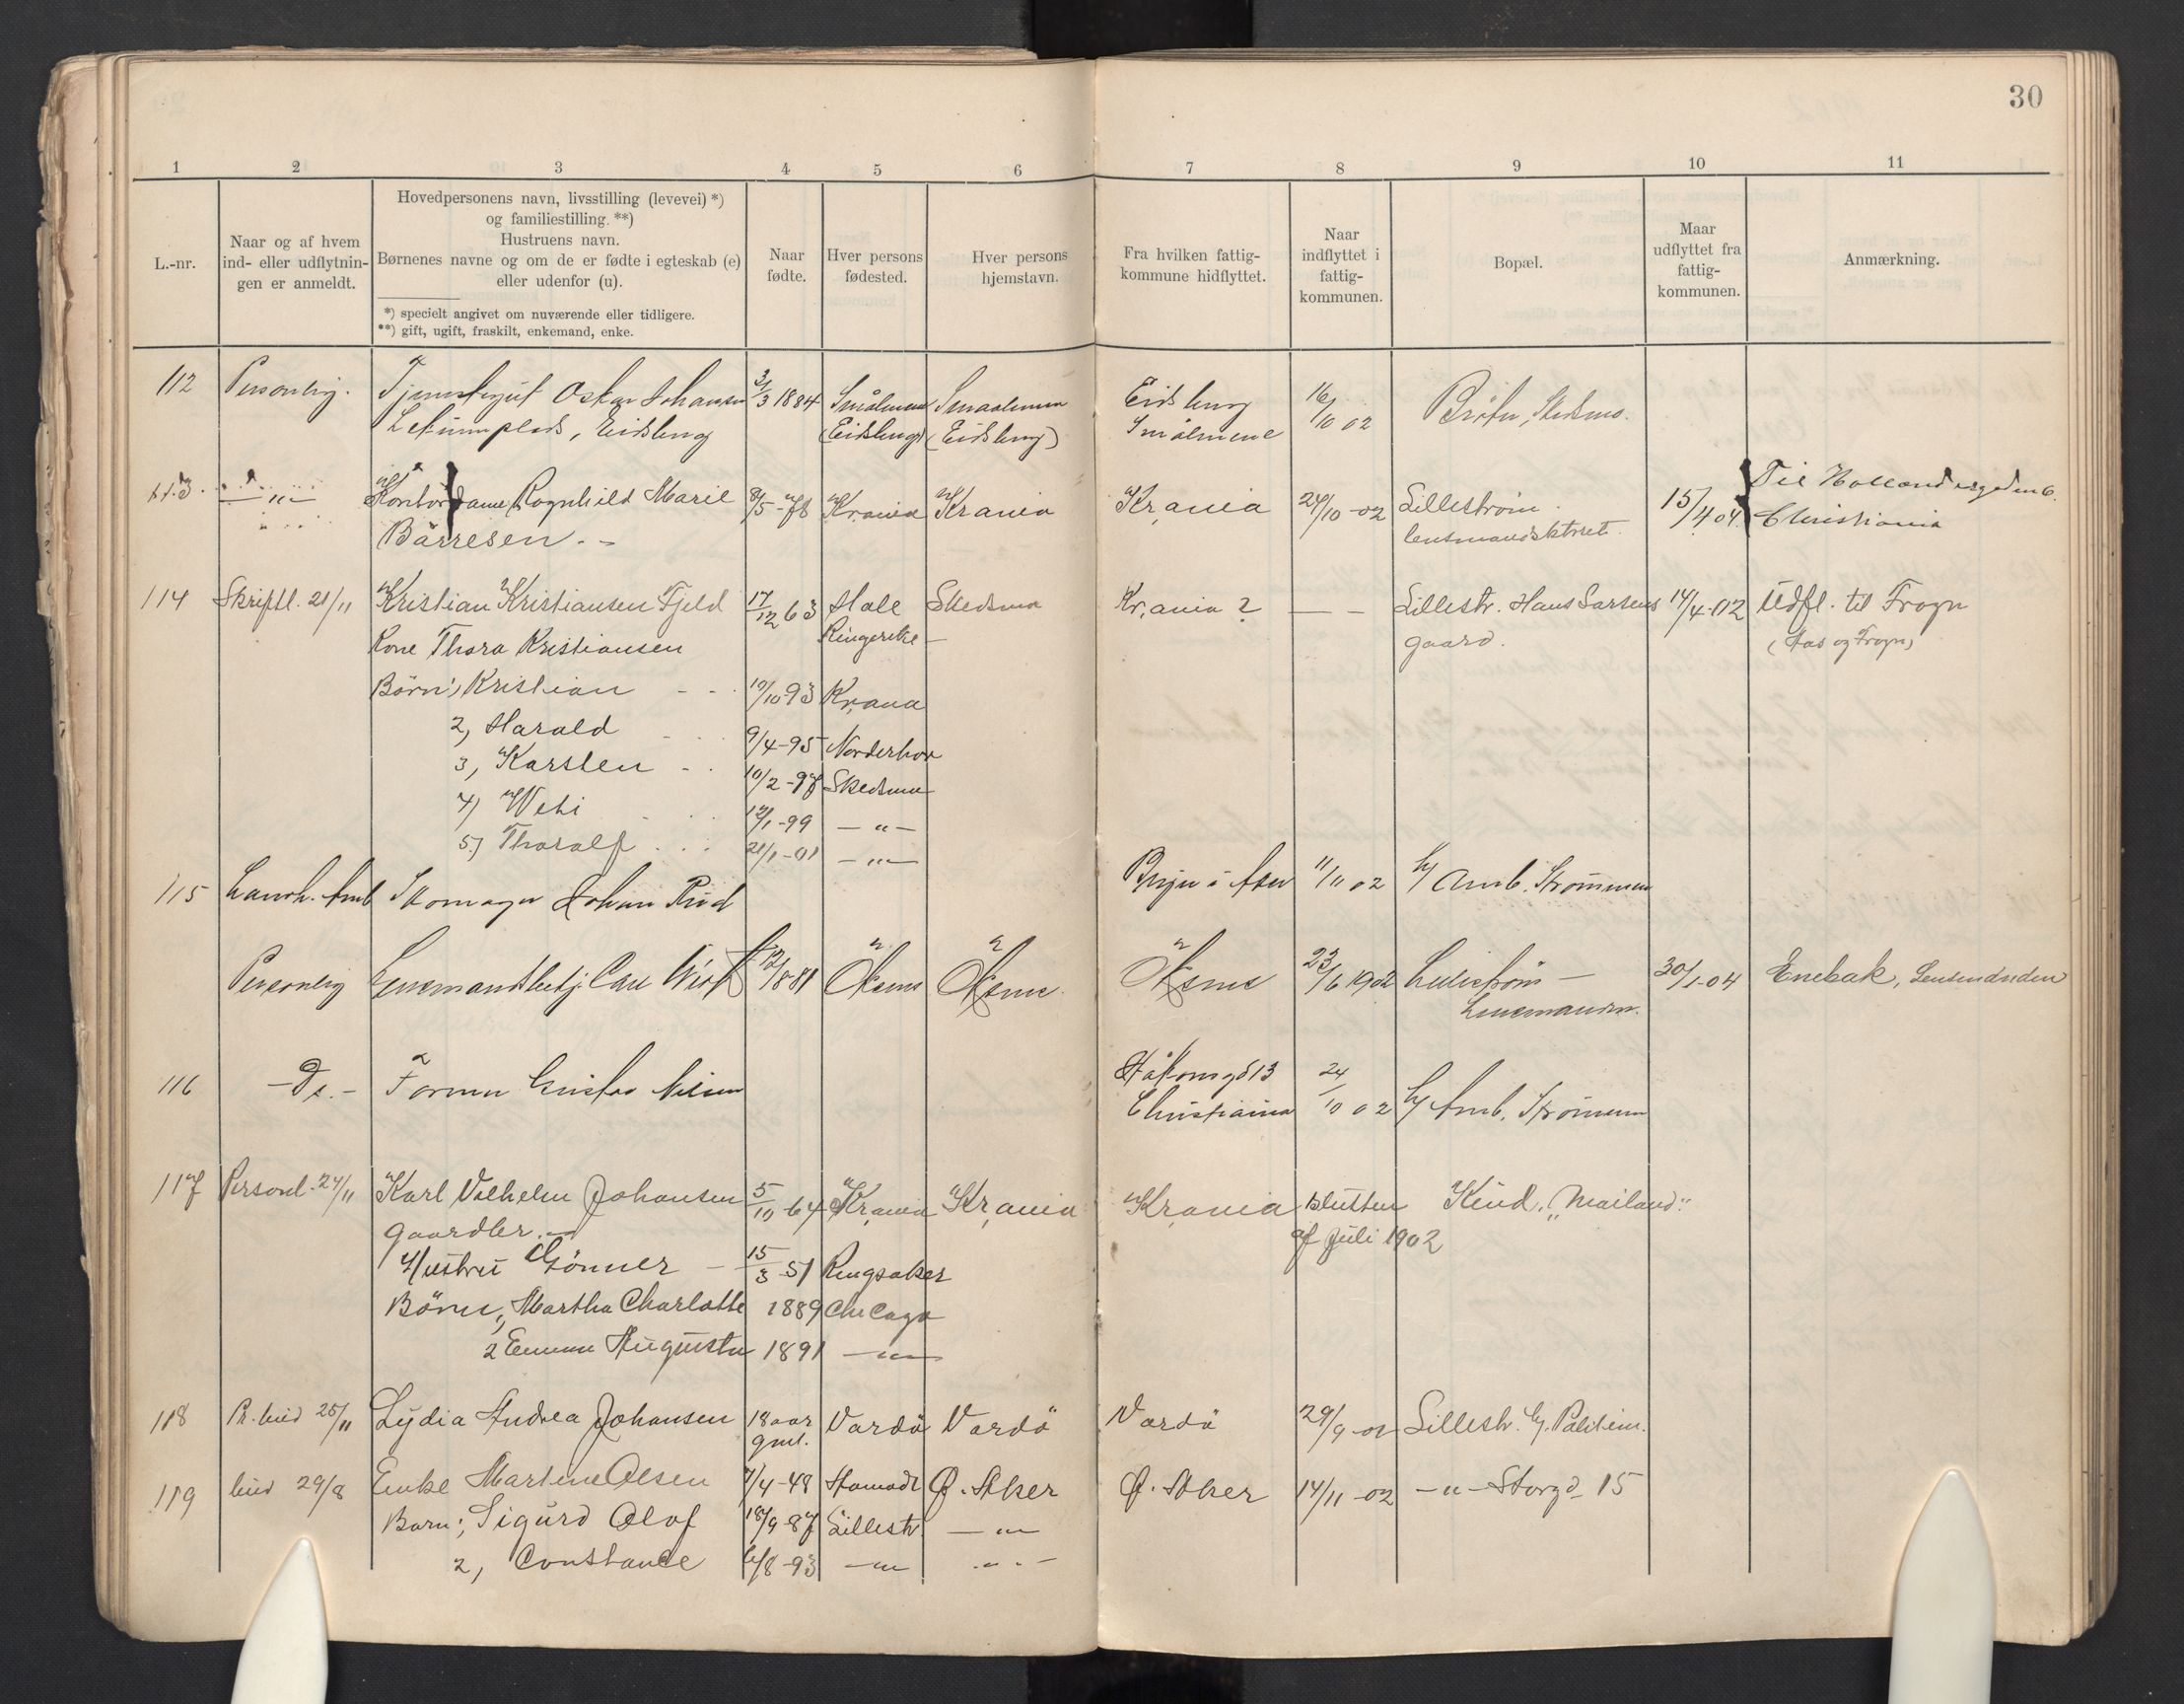 30
1 2 3 4 5 6 7 8 9 10 11
L.-nr.
Naar og af hvem
ind- eller udflytnin-
gen er anmeldt.
Hovedpersonens navn, livsstilling (levevei) *)
og familiestilling. **)
Hustruens navn.
Børnenes navne og om de er fødte i egteskab (e)
eller udenfor (u).
*) specielt angivet om nuværende eller tidligere.
**) gift, ugift, fraskilt, enkemand, enke.
Naar
fødte.
Hver persons
fødested.
Hver persons
hjemstavn.
Fra hvilken fattig-
kommune hidflyttet.
Naar
indflyttet i
fattig-
kommunen.
Bopæl.
Maar
udflyttet fra
fattig-
kommunen.
Anmærkning.
112 Personlig. Tjenstegut Oskar Johansen 3/3 1884 Smålenene Smaalenene Eidsberg 16/10 02 Skedsmo.
plads, Eidsberg (Eidsberg) (Eidsberg) Smålenene
113. — " — Kontordame Ragnhild Marie 8/5 -78 Kr.ania Kr.ania Kr.ania 24/10 -02 Lillestrøm. 15/4 04. Til
Børresen. - Lensmandsktoret. Christiania
114 Skriftl. 21/11 Kristian Kristiansen Fjeld 17/12 63 Hole Skedsmo Kr.ania ? — — Lillestr. Hans Larsens 14/4-02 Udfl. til Frogn
Kone Thora Kristiansen Ringerike — gaard. (Aas og Frogn)
Børn: 1, Kristian 19/10-93 Kr.ania
2, Harald 9/4-95 Norderhov
3, Karsten 10/2-97 Skedsmo
4) 12/1-99 — " —
5) Thoralf 21/1-01 — " —
115 Landh. Amb Skomager Johan Rud i Asker 11/11 02 h/ Amb. Strømmen
Personlig Lensmandsbetj. Carl 12/8-81 Næsne Næsne Næsne 23/6 1902 Lillestrøm — 30/1-04 Enebak, Lensmanden
Lensmanden.
116 — Do. — Former Gustav Nilsen Håkonsgd 13 24/10 02 h/ Amb. Strømmen
Christiania
117 Personl. 24/11 Karl Vilhelm Johansen 5/10-64 Kr.ania Kr.ania Kr.ania Slutten Rud. "Mailand"
gaardbr. af Juli 1902
Hustru Gønner — 15/3 51 Ringsaker
Børn 1, Martha Charlotte 1889 Chicago
2 Emma Augusta 1891 — " —
118 Pr. bud 25/11 Lydia Andrea Johansen 18 aar Vardö Vardö Vardö 29/9-02 Lillestr. h/.
gml.
119 bud 29/8 Enke Martine Olsen 7/4-48 Ø. Aker Ø. Aker 14/11-02 — " — Storgd. 15
Barn: 1, Sigurd Olof 18/9-87 Lillestr. — " —
2, Constance 6/8-93 — " — — " —